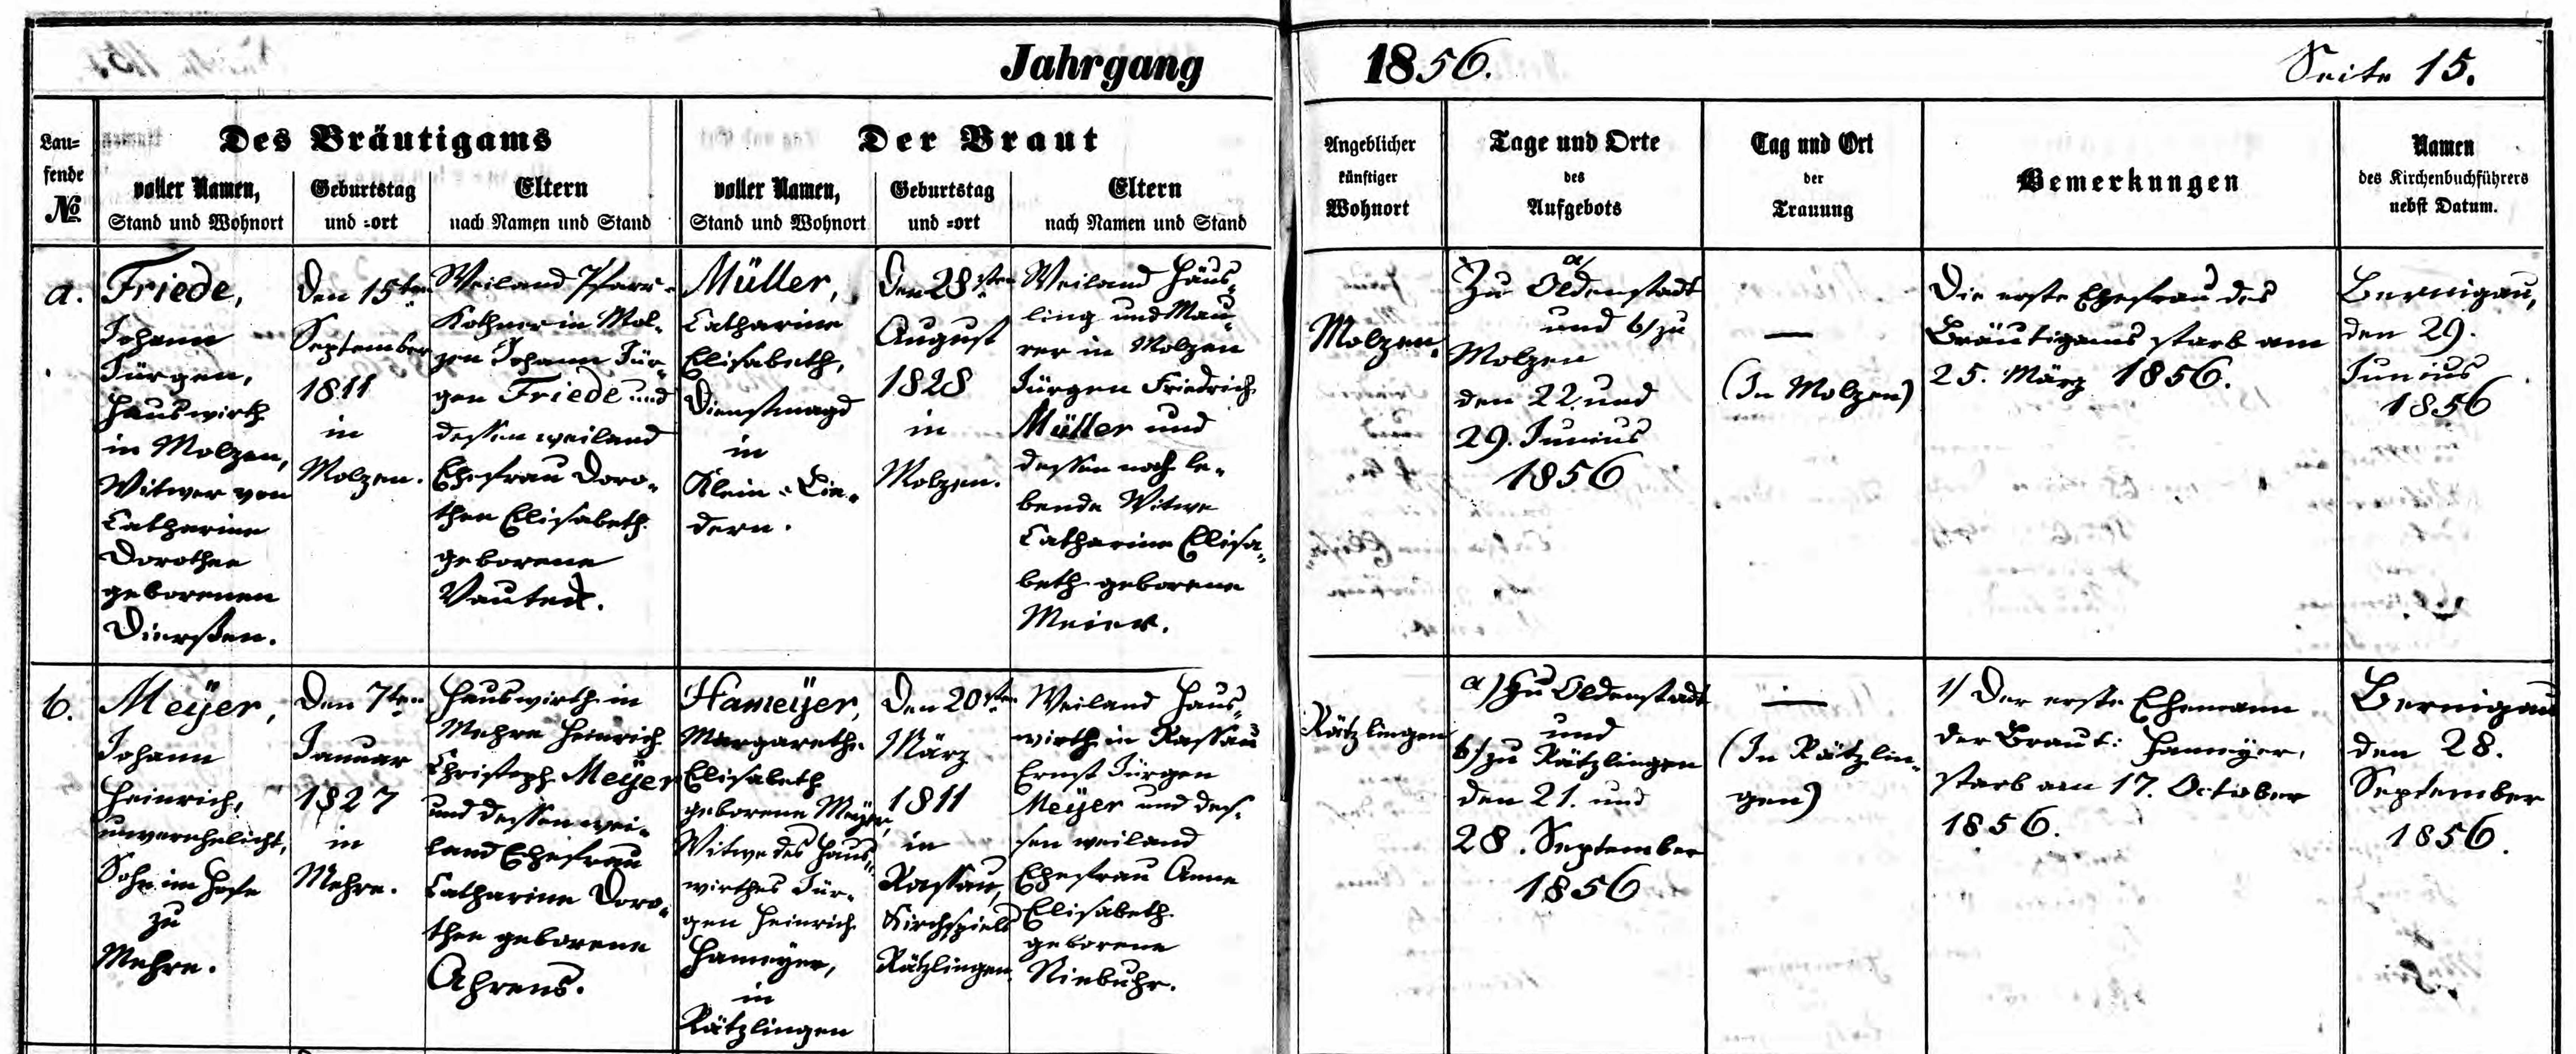 Jahrgang 1856. Seite 15.
Lau=
fende
No
Des Bräutigams
voller Namen,
Stand und Wohnort
Geburtstag
und =ort
Eltern
nach Namen und Stand
Der Braut
voller Namen,
Stand und Wohnort
Geburtstag
und =ort
Eltern
nach Namen und Stand
Angeblicher
künftiger
Wohnort
Tage und Orte
des
Aufgebots
Tag und Ort
der
Trauung
Bemerkungen
Namen
des Kirchenbuchführers
nebst Datum.
a.
Friede,
Johann
Jürgen,
Hauswirth
in Molzen,
Witwer von
Catharine
Dorothee
geborenen
Dierßen.
Den 15ten
September
1811
in
Molzen.
Weiland Pfarr-
Kothner in Mol-
zen Johann Jür-
gen Friede und
dessen weiland
Ehefrau Doro-
thee Elisabeth
geborene
Vauteck.
Müller,
Catharine
Elisabeth,
Dienstmagd
in
Klein-Lie-
dern.
Den 28sten
August
1828
in
Molzen.
Weiland Häus-
ling und Mau-
rer in Molzen
Jürgen Friedrich
Müller und
dessen noch le-
bende Witwe
Catharine Elisa-
beth geborene
Meier.
Molzen.
a/
Zu Oldenstadt
und b/ zu
Molzen
den 22. und
29. Junius
1856
—
(In Molzen)
Die erste Ehefrau des
Bräutigams starb am
25. März 1856.
Bernigau,
den 29.
Junius
1856
b.
Meÿer,
Johann
Heinrich,
unverehelicht,
Sohn im Hofe
zu
Mehre.
Den 7ten
Januar
1827
in
Mehre.
Hauswirth in
Mehre Heinrich
Christoph Meÿer
und dessen wei-
land Ehefrau
Catharine Doro-
thee geborene
Ahrens.
Hameÿer,
Margarethe
Elisabeth
geborene Meÿer,
Witwe des Haus-
wirthes Jür-
gen Heinrich
Hameÿer,
in
Rätzlingen
Den 20sten
März
1811
in
Rassau,
Kirchspiels
Rätzlingen.
Weiland Haus-
wirth in Rassau
Ernst Jürgen
Meÿer und des-
sen weiland
Ehefrau Anne
Elisabeth
geborene
Niebuhr.
Rätzlingen
a) Zu Oldenstadt
und
b/ zu Rätzlingen
den 21. und
28. September
1856
—
(In Rätzlin-
gen)
1/ Der erste Ehemann
der Braut: Hameÿer,
starb am 17. October
1856.
Bernigau
den 28.
September
1856.